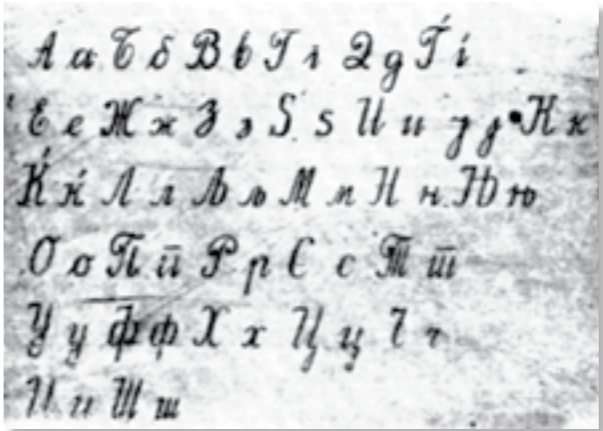 А а Б б В в Г г Д д Ѓ ѓ
Е е Ж ж З з Ѕ ѕ И и Ј ј К к
Ќ ќ Л л Љ љ М м Н н Њ њ
О о П п Р р С с Т т
У у Ф ф Х х Ц ц Ч ч
Џ џ Ш ш